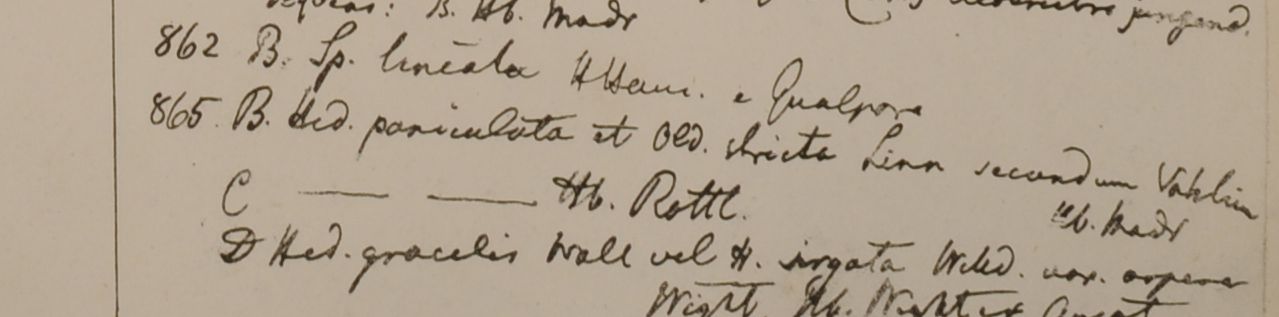 B. Hb. Madr
862 B. Sp. lineata HHam. e Gualpara
865. B. Hed. paniculata et Old. stricta Linn secundum Vahlium
Hb. Madr
C — — Hb. Rottl.
D Hed. gracilis Wall vel H. virgata Willd. var. aspera
Wight. Hb. Wight ex